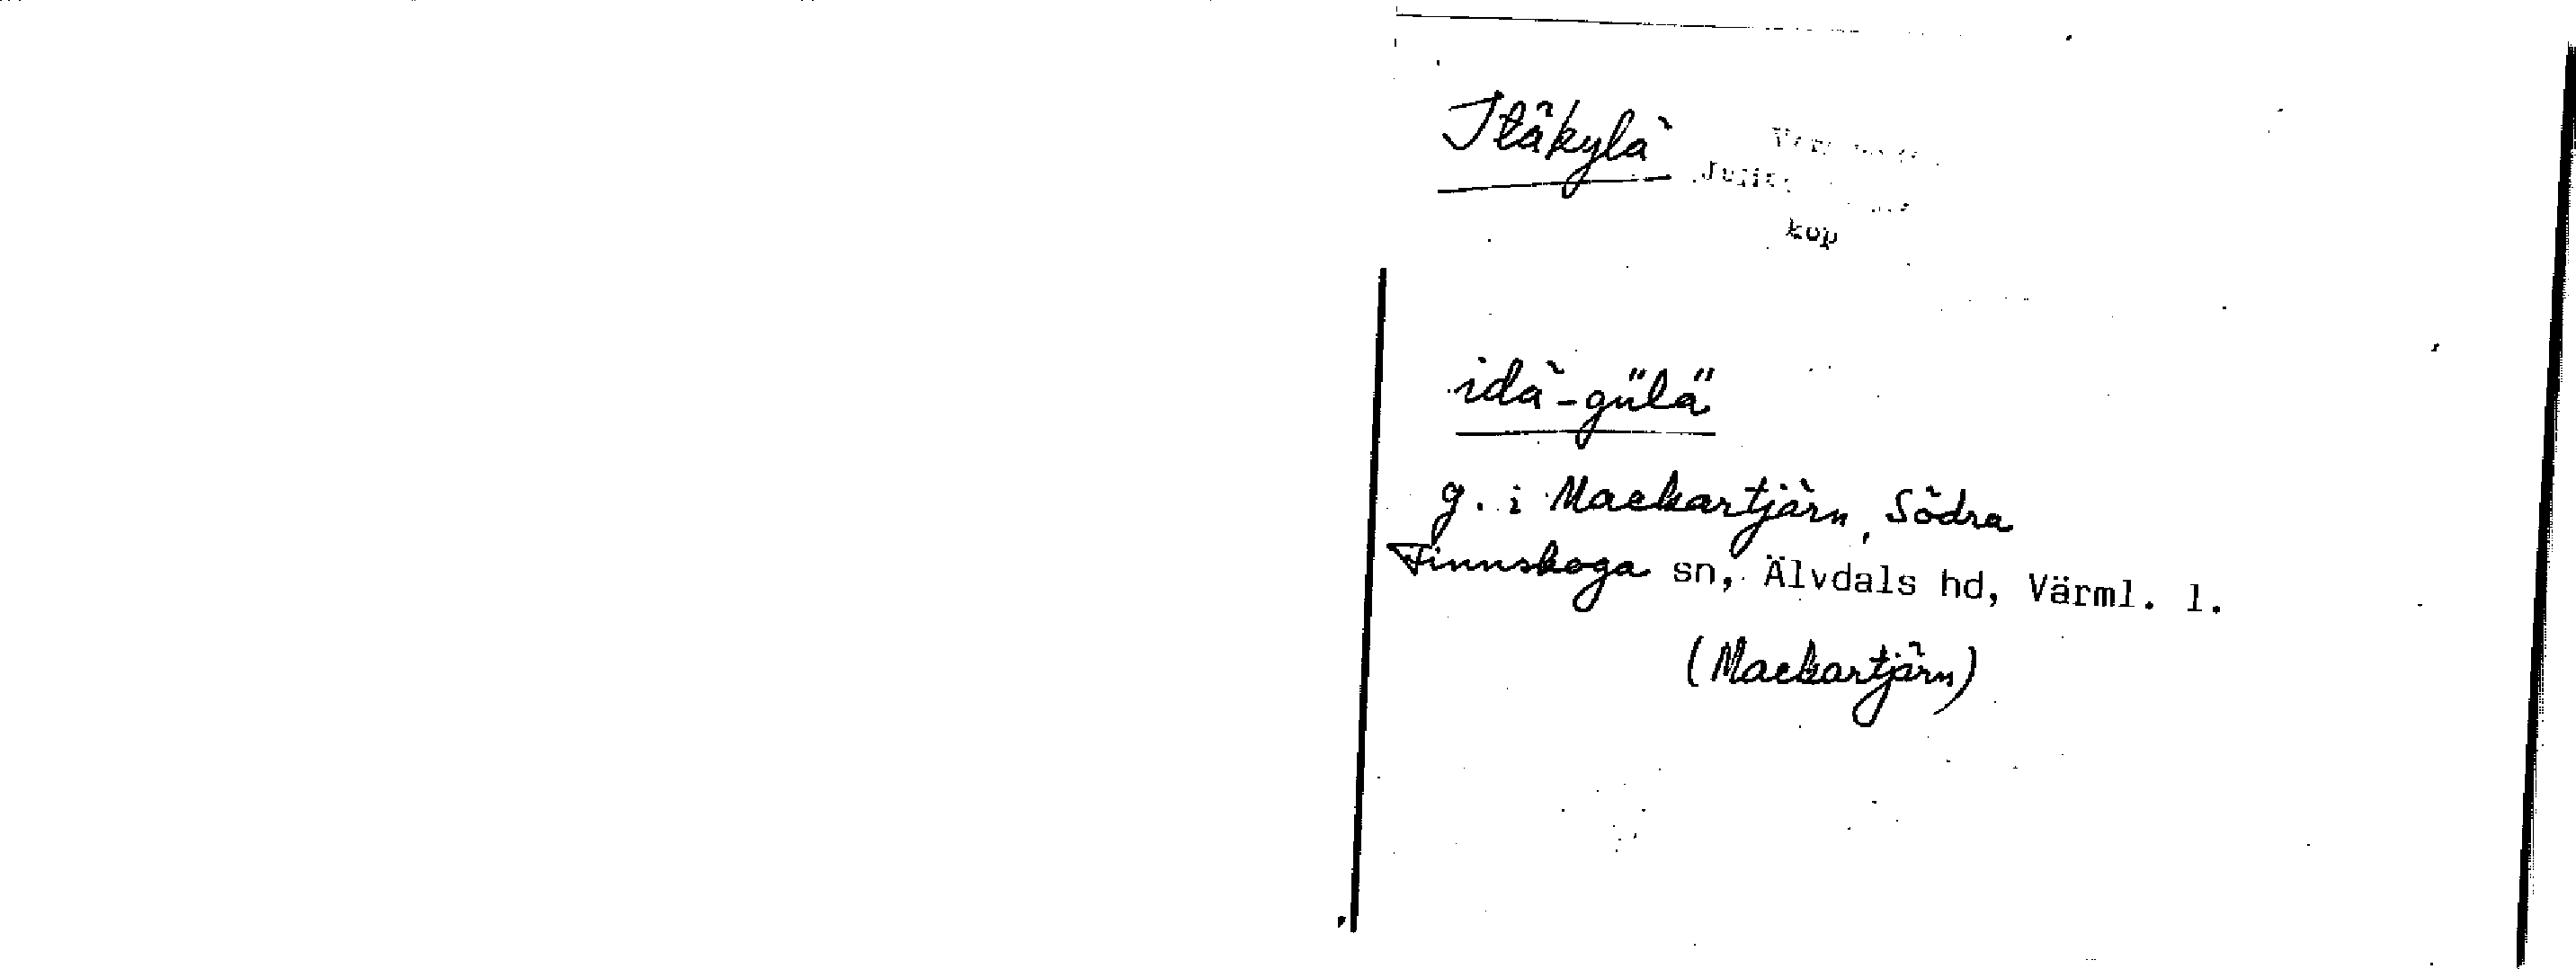 Itäkylä
kop
idä-gülä
g. i Mackartjärn, Södra
Finnskoga sn, Älvdals hd, Värml. l.
(Mackartjärn)